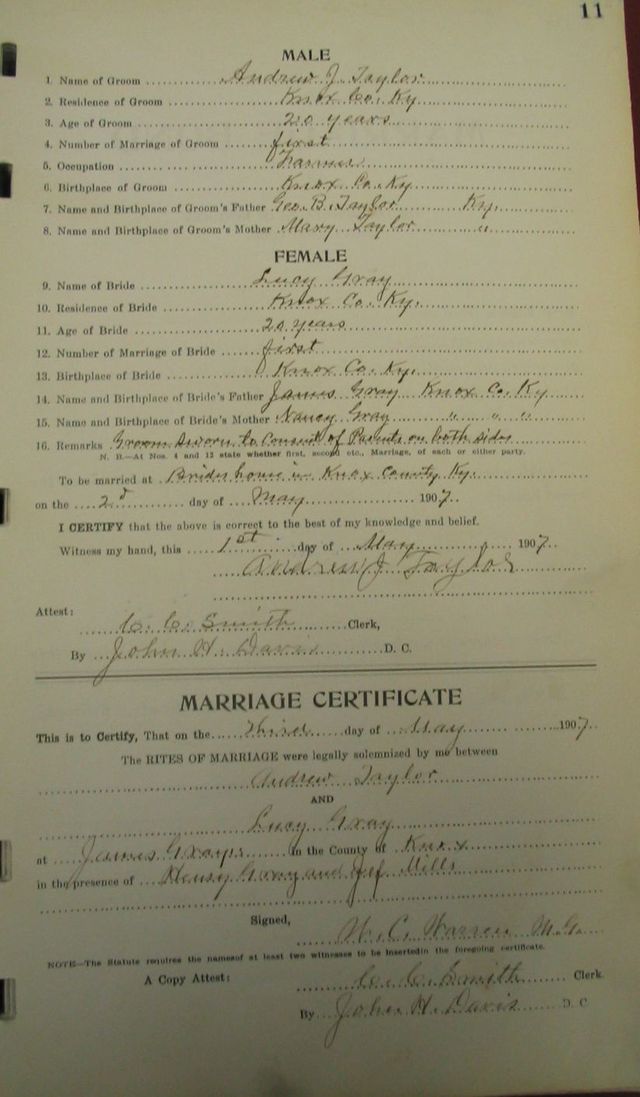 11
MALE
1. Name of Groom Andrew J. Taylor
2. Residence of Groom Knox Co. Ky
3. Age of Groom 20 years
4. Number of Marriage of Groom first
5. Occupation Farmer
6. Birthplace of Groom Knox Co. Ky.
7. Name and Birthplace of Groom's Father Geo. B. Taylor Ky.
8. Name and Birthplace of Groom's Mother Mary Taylor "
FEMALE
9. Name of Bride Lucy Gray
10. Residence of Bride Knox Co. Ky.
11. Age of Bride 20 years
12. Number of Marriage of Bride first
13. Birthplace of Bride Knox Co. Ky.
14. Name and Birthplace of Bride's Father James Gray Knox Co. Ky
15. Name and Birthplace of Bride's Mother Nancy Gray " " "
16. Remarks Groom sworn to Consent of Parents on both sides
N. B.—At Nos. 4 and 12 state whether first, second etc., Marriage, of each or either party.
To be married at Brides home in Knox County Ky.
on the 2d day of May 1907
I CERTIFY that the above is correct to the best of my knowledge and belief.
Witness my hand, this 1st day of May 1907
Andrew J Taylor
Attest:
C. C. Smith Clerk,
By John H. Davis D. C.
MARRIAGE CERTIFICATE
This is to Certify, That on the Third day of May 1907
The RITES OF MARRIAGE were legally solemnized by me between
Andrew Taylor
AND
Lucy Gray
at James Grays in the County of Knox
in the presence of Henry Gray and Jef Mills
Signed,
W. C. Warren M.G.
NOTE—The Statute requires the namesof at least two witnesses to be insertedin the foregoing certificate.
A Copy Attest: C. C. Smith Clerk
By John H. Davis D. C